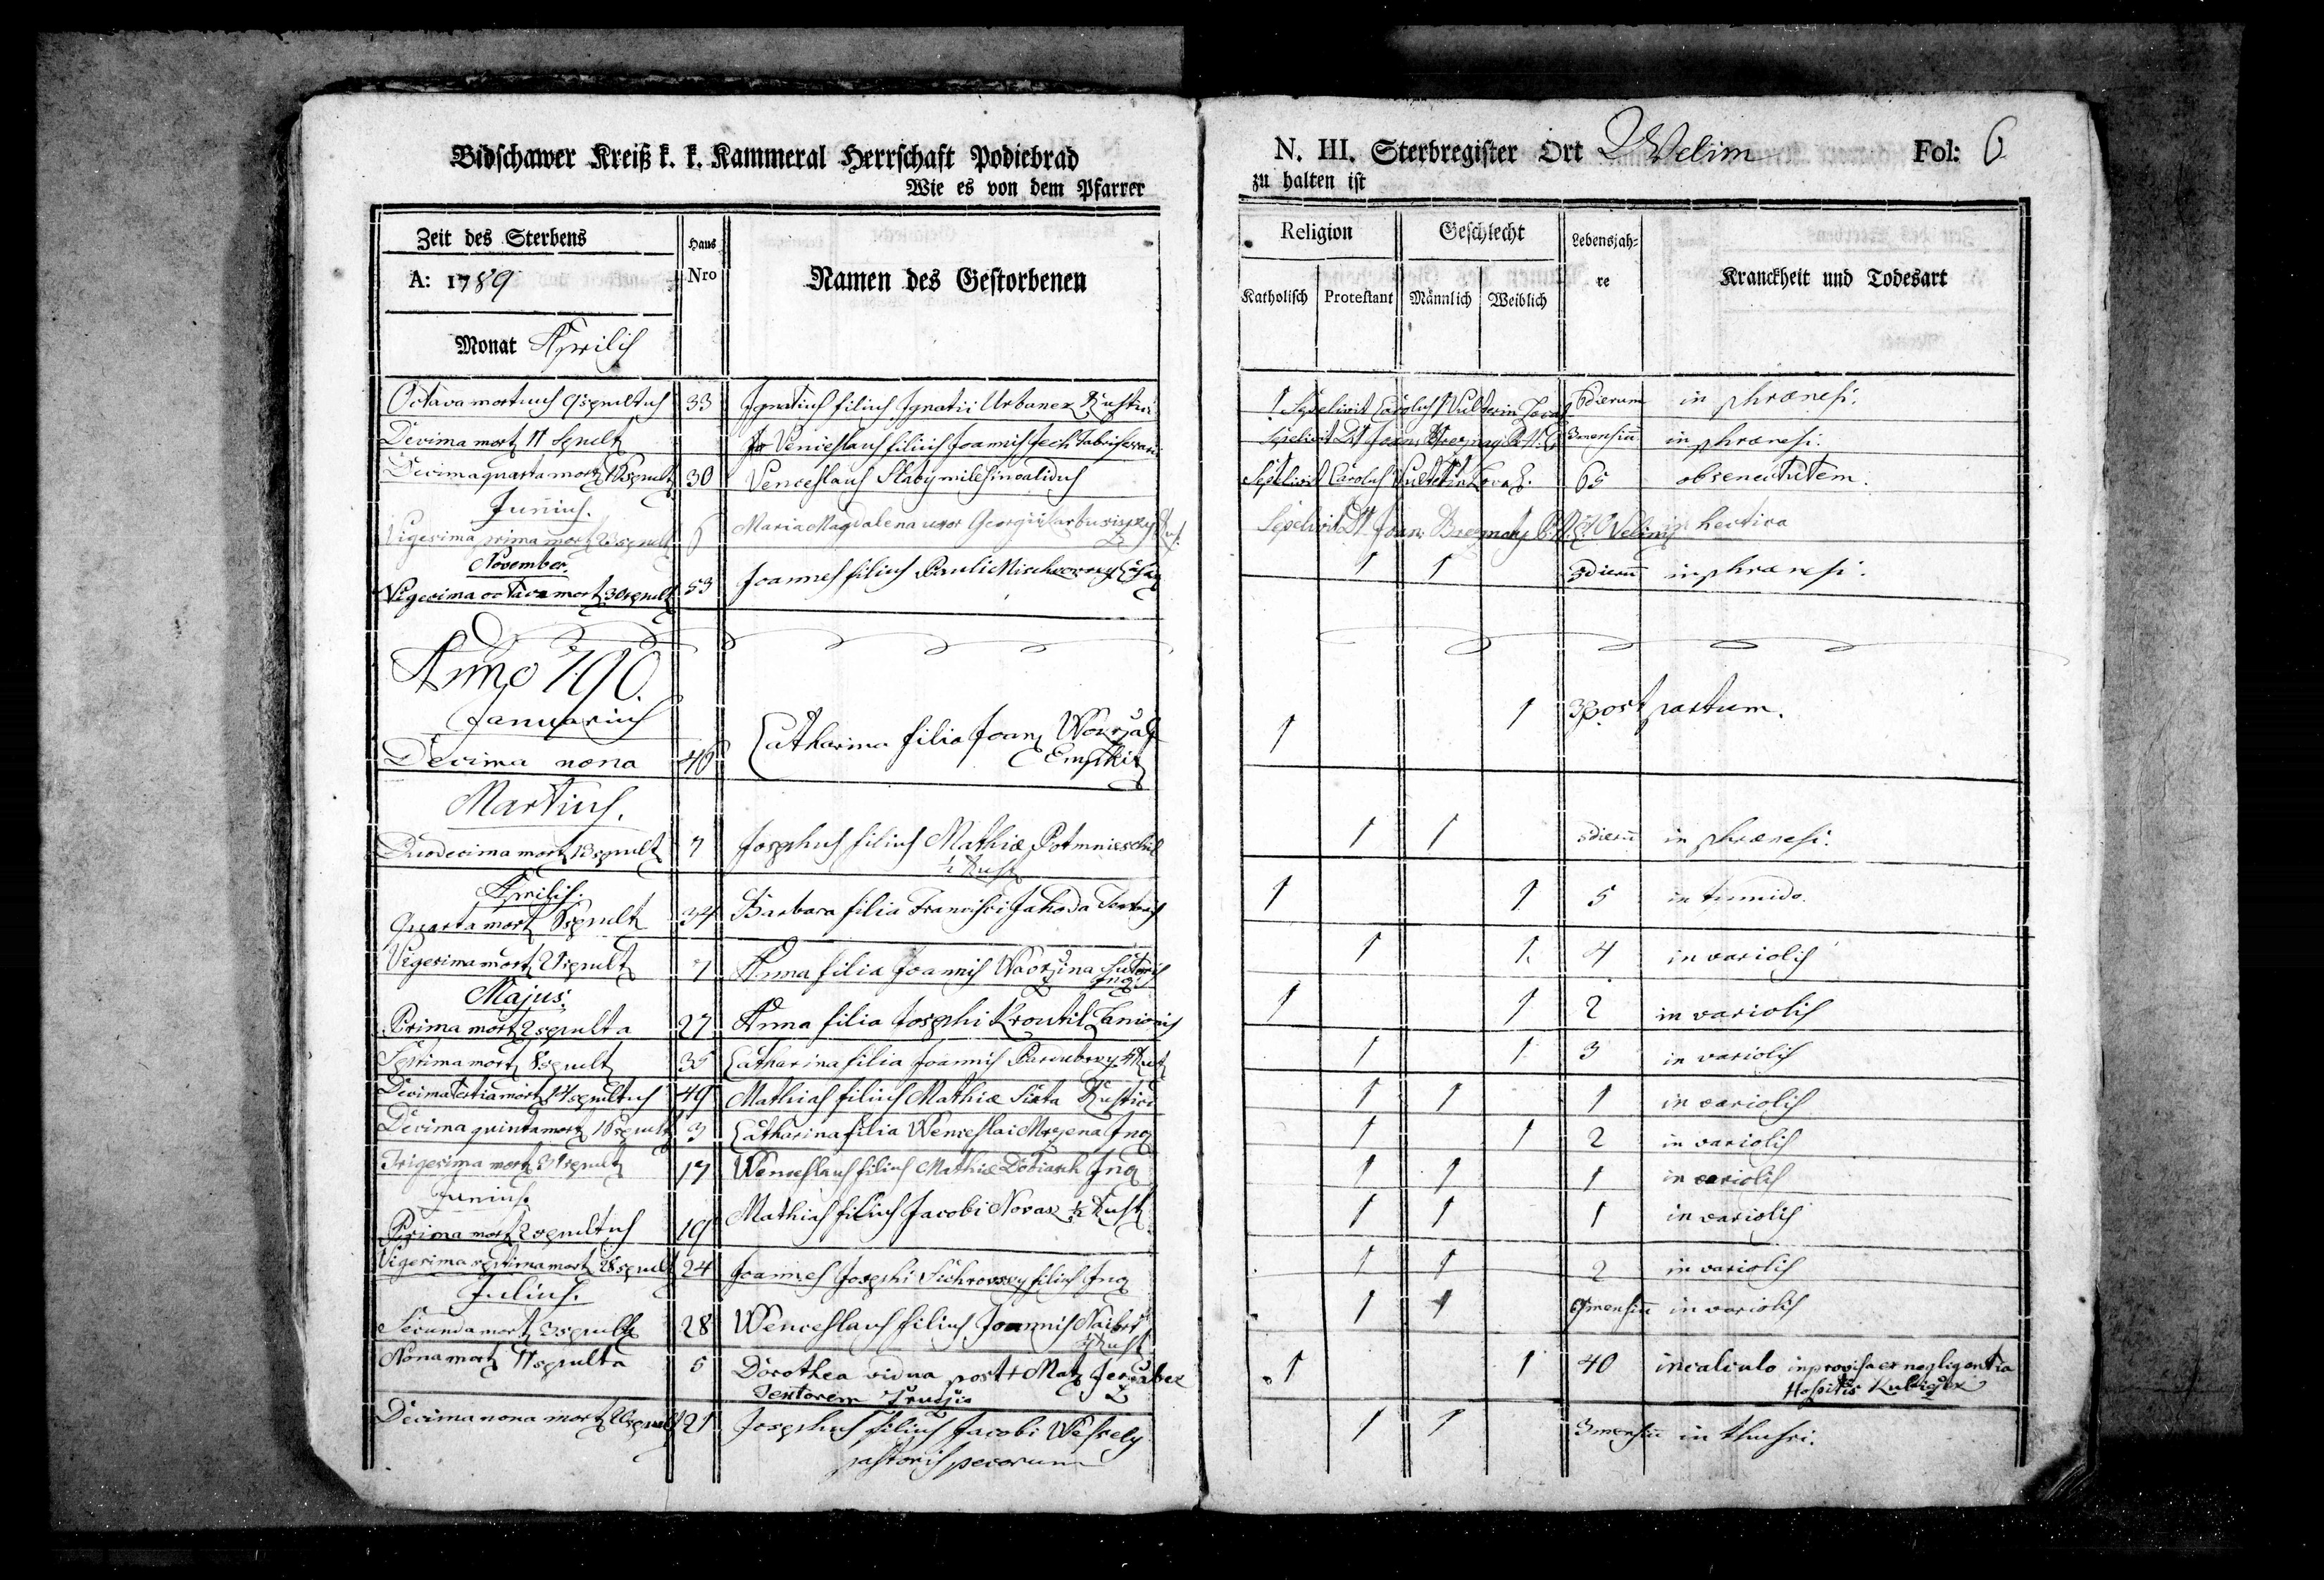 Bidschawer Kreiß k. k. Kammeral Herrschaft Podiebrad
Wie es von dem Pfarrer
N. III. Sterbregister Ort Welim Fol: 6
zu halten ist
Zeit des Sterbens
A: 1789
Monat Aprilis
Haus Nro
Namen des Gestorbenen
Religion
Katholisch Protestant
Geschlecht
Männlich Weiblich
Lebensjahre
Kranckheit und Todesart
Octava mortuus 9 sepultus 33 Ignatius filius Ignatii Urbanez Rustici 1 Sepelivit Carolus 6 dierum in phraenesi.
Decima mort 11 Sepult Venceslaus filius Joannis Sepelivit Dt Joan 3 mensiu in phraenesi.
Decima quarta mort sepult 30 Venceslaus Slaby miles invalidus Sepelivit Carolus 65 ob senectutem.
Junius.
Vigesima prima mort 23 sepult 6 Maria Magdalena uxor Georgii Sepelivit Dt Joan in hectica
November.
Vigesima octava mort 30 sepult 53 Joannes filius Pauli 1 1 3 dieru in phraenesi.
Anno 790.
Januarius
Decima nona 46 Catharina filia Joan 1 1 3 post partum.
Martius.
Duodecima mort 13 sepult 7 Josephus filius Mathiae Potmnieschil 1 1 5 dieru in phraenesi.
½ Rust
Aprilis.
Quarta mort 6 sepult 34 Barbara filia Francisci Jahoda 1 1 5 in tumido.
Vigesima mort 21 sepult 7 Anna filia Joannis Sutoris 1 1 4 in variolis
Inq
Majus.
Prima mort 2 sepulta 27 Anna filia Josephi Kroutil Lanionis 1 1 2 in variolis
Septima mort 8 sepult 35 Catharina filia Joannis Pardubsky 1 1 3 in variolis
Decima tertia mort 14 sepultus 49 Mathias filius Mathiae Sixta Rustici 1 1 1 in variolis
Decima quinta mort 16 sepult 3 Catharina filia Wenceslai Mrzena Inq 1 1 2 in variolis
Trigesima mort 31 sepult 17 Wenceslaus filius Mathiae Dobiasch Inq 1 1 1 in variolis
Junius.
Prima mort 2 sepultus 19 Mathias filius Jacobi Novak ½ Rust 1 1 1 in variolis
Vigesima septima mort 28 sepult 24 Joannes Josephi filius Inq 1 1 2 in variolis
Julius.
Secunda mort 3 sepult 28 Wenceslaus filius Joannis 1 1 mensiu in variolis
Rust
Nona mort 11 sepulta 5 Dorothea vidua post + Mat 1 1 40 in calculo improvisa ex negligentia
Textorem Hospitis
Decima nona mort sepult 21 Josephus filius Jacobi Wesely 1 1 3 mensiu in thussi.
pastoris pecorum